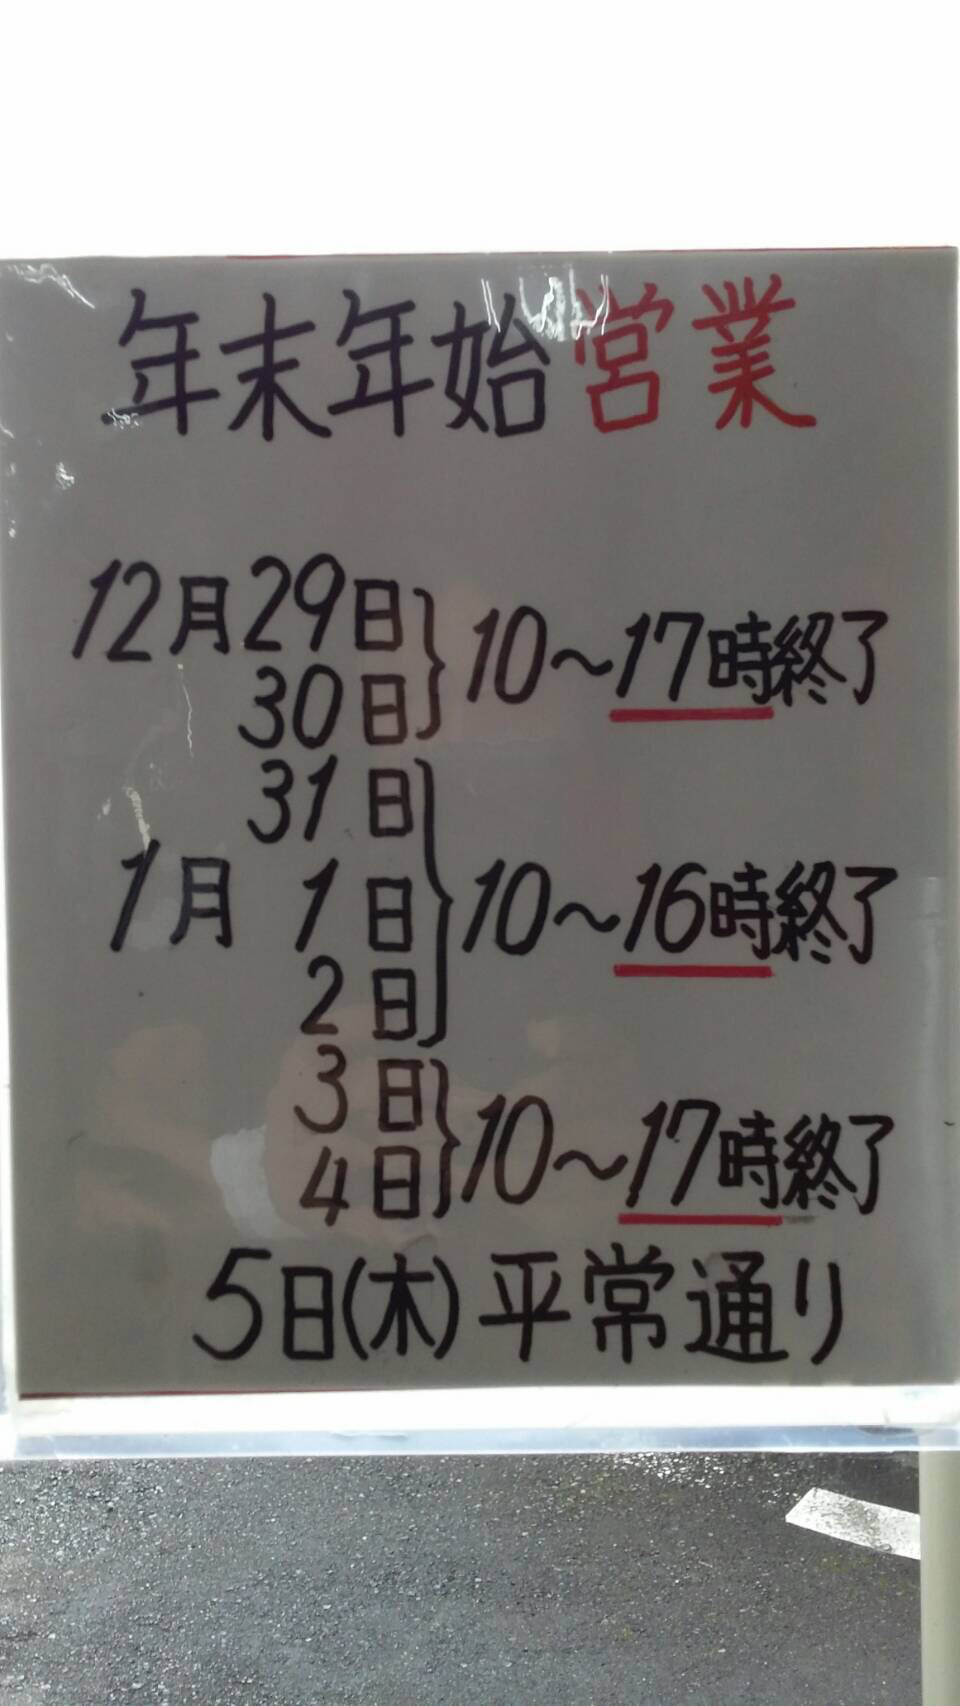 年末年始営業
12月29日
30日 } 10〜17時終了
31日
1月 1日 } 10〜16時終了
2日
3日
4日 } 10〜17時終了
5日(木)平常通り